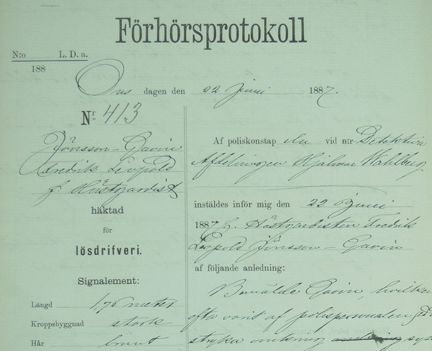 Förhörsprotokoll
N:o L. D. n.
188
Ons dagen den 22 juni 1887.
Nr 413
Jönsson-Gavin
Fredrik Leopold
f. Hästgardist
häktad
för
lösdrifveri.
Signalement:
Längd 176 meter
Kroppsbyggnad stark
Hår brunt
Af poliskonstapeln vid Detektiva
Afdelningen Hjalmar Wahlberg
inställdes inför mig den 22 juni
1887 f. Hästgardisten Fredrik
Leopold Jönsson-Gavin
af följande anledning:
Bemälde Gavin, hvilken
ofta varit af polispersonalen
stryka omkring